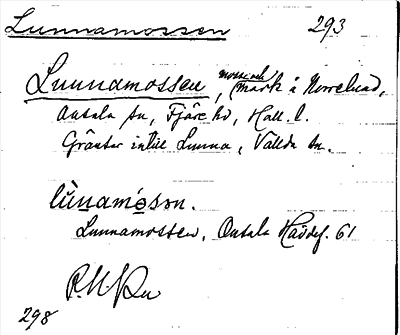 Lunnamossen 293
Lunnamossen, mosse och mark i Norrelund,
Onsala sn, Fjäre hd, Hall. l.
Gränsar intill Lunna, Vallda sn.
lùnamósən.
Lunnamossen, Onsala Hadef. 61
298